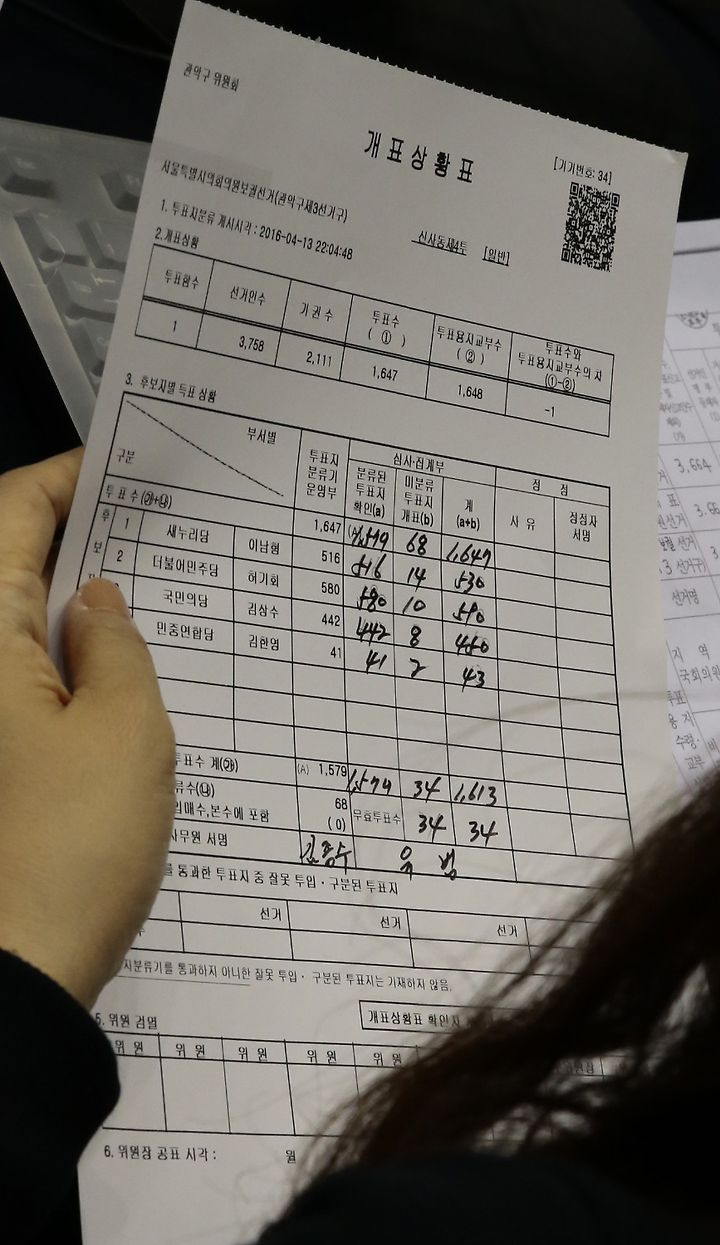 관악구 위원회
개 표 상 황 표
[기기번호: 34]
서울특별시의회의원보궐선거(관악구제3선거구)
신사동제4투 [일반]
1. 투표지분류 개시시각 : 2016-04-13 22:04:48
2.개표상황
투표함수 선거인수 기 권 수 투표수 ( ① ) 투표용지교부수 ( ② ) 투표수와 투표용지교부수의 차 (①-②)
1 3,758 2,111 1,647 1,648 -1
3. 후보자별 득표 상황
부서별 구분 투표지 분류기 운영부 심사·집계부 정 정
분류된 투표지 확인(a) 미분류 투표지 개표(b) 계 (a+b) 사 유 정정자 서명
투 표 수 (㉮+㉯) 1,647 1,579 68 1,647
후 보 1 새누리당 이남형 516 516 14 530
2 더불어민주당 허기회 580 580 10 590
국민의당 김상수 442 442 8 450
민중연합당 김한영 41 41 2 43
투표수 계(㉮) (A) 1,579 1,579 34 1,613
류수(㉯) 68 무효투표수 34 34
입매수,본수에 포함 ( 0)
사무원 서명
를 통과한 투표지 중 잘못 투입 · 구분된 투표지
선거 선거 선거
지분류기를 통과하지 아니한 잘못 투입 · 구분된 투표지는 기재하지 않음.
5. 위원 검열
개표상황표 확인자
위 원 위 원 위 원 위 원 위 원
6. 위원장 공표 시각 : 월
3,664
선거명
지 역
국회의원
용 지
수령·
교부